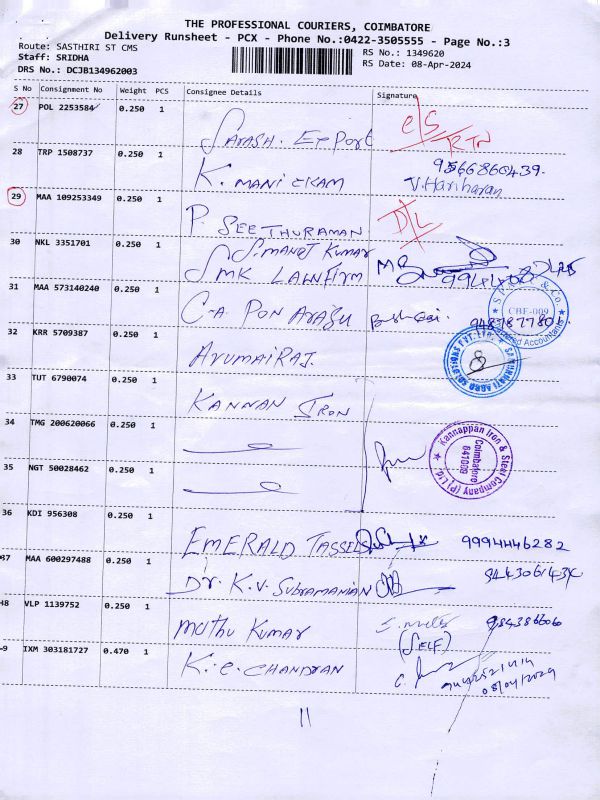 THE PROFESSIONAL COURIERS, COIMBATORE
Delivery Runsheet - PCX - Phone No.:0422-3505555 - Page No.:3
Route: SASTHIRI ST CMS
RS No.: 1349620
Staff: SRIDHA
RS Date: 08-Apr-2024
DRS No.: DCJB134962003
S No Consignment No Weight PCS Consignee Details Signature
27 POL 2253584 0.250 1
EXPORT
RTN
28 TRP 1508737 0.250 1
K. MANICKAM
9566860439.
V. Hariharan
29 MAA 109253349 0.250 1
P. SEETHURAMAN
D/L
30 NKL 3351701 0.250 1
S. MANOJ KUMAR
SMK LAWFIRM
31 MAA 573140240 0.250 1
C-A PON ARASU
CBE-009
32 KRR 5709387 0.250 1
ARUMAIRAJ.
33 TUT 6790074 0.250 1
KANNAN IRON
34 TMG 200620066 0.250 1
Kannappan Iron & Steel Company (P) Ltd.
Coimbatore
641009
35 NGT 50028462 0.250 1
36 KDI 956308 0.250 1
EMERALD TASSELS
9994446282
37 MAA 600297488 0.250 1
Dr. K.V. Subramanian
38 VLP 1139752 0.250 1
Muthu Kumar
(SELF)
-9 IXM 303181727 0.470 1
K. C. CHANDRAN
08/04/2024
11